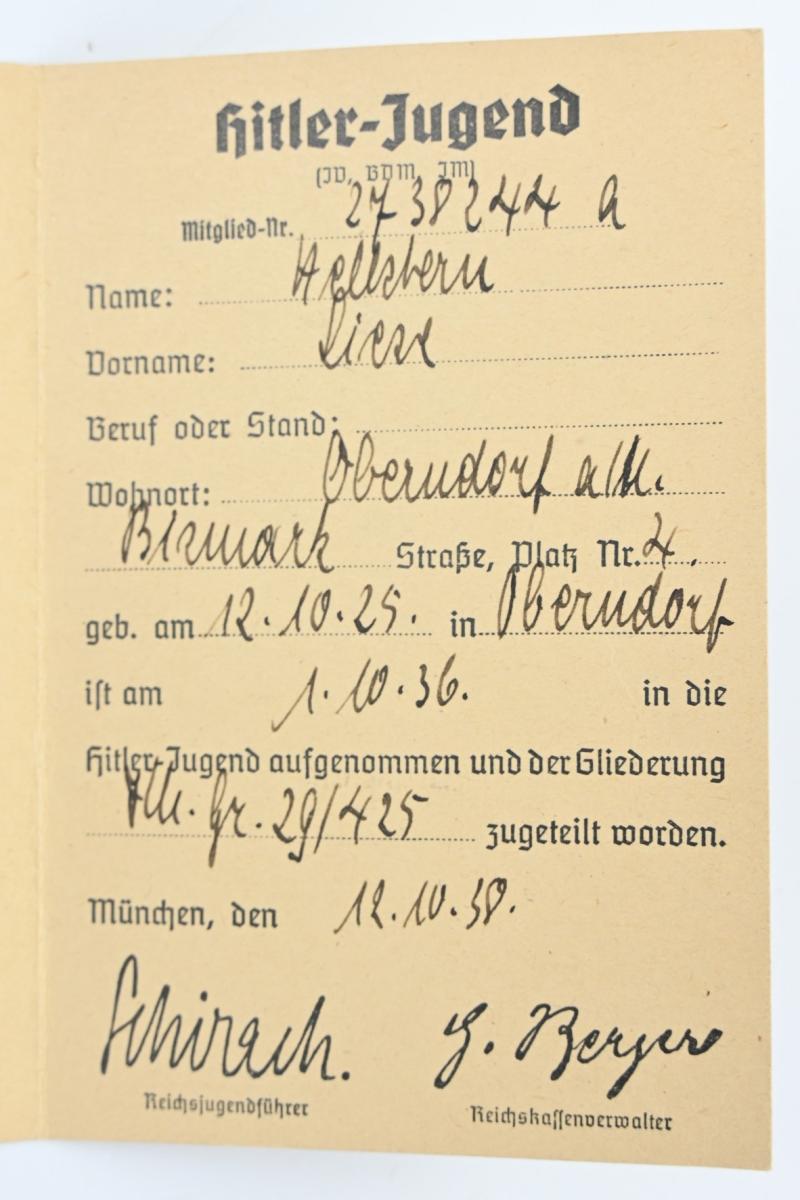 Hitler-Jugend
(JV, BDM, JM)
Mitglied-Nr. 2738244 A
Name: Hellstern
Vorname: Liesel
Beruf oder Stand:
Wohnort: Oberndorf a/N.
Bismark Straße, Platz Nr. 4.
geb. am 12.10.25. in Oberndorf
ist am 1.10.36. in die
Hitler-Jugend aufgenommen und der Gliederung
Gr. 29/425 zugeteilt worden.
München, den 12.10.38.
Schirach. G. Berger
Reichsjugendführer Reichskassenverwalter